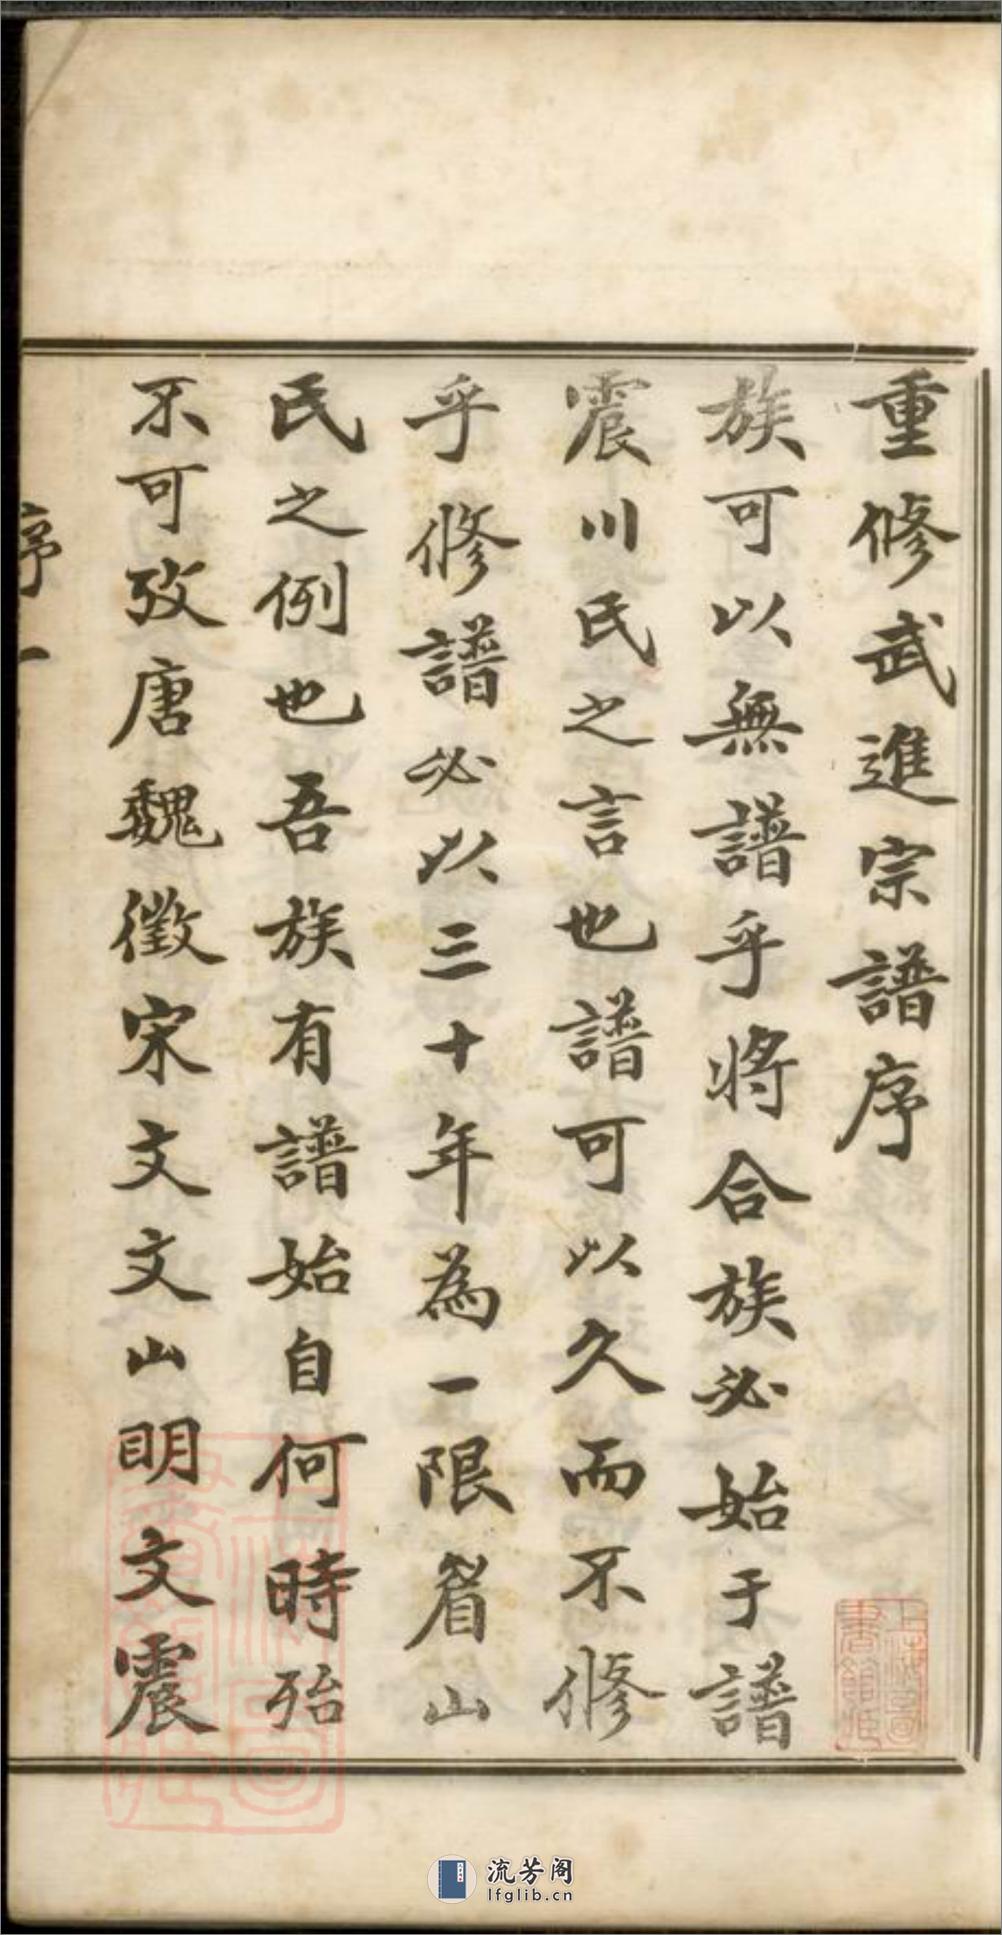 重修武進宗譜序
族可以無譜乎將合族必始于譜
震川氏之言也譜可以久而不修
乎修譜必以三十年為一限眉山
氏之例也吾族有譜始自何時殆
不可攷唐魏徵宋文文山明文震
序 一
上海圖書館藏
流芳阁
lfglib.cn